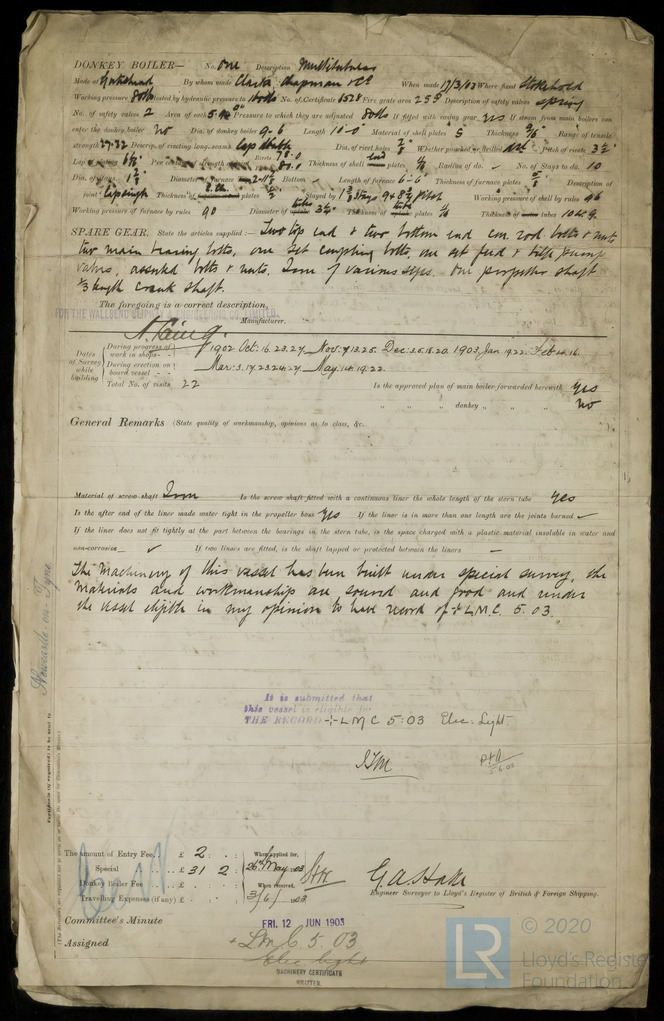 DONKEY BOILER— No. One Description Multitubular
Made at Gateshead By whom made Clarke Chapman & Co When made 17/3/03 Where fixed Stokehold
Working pressure 80lb tested by hydraulic pressure to 160lb No. of Certificate 6528 Fire grate area 25.5 Description of safety valves spring
No. of safety valves 2 Area of each Pressure to which they are adjusted 80lb If fitted with easing gear yes If steam from main boilers can
enter the donkey boiler no Dia. of donkey boiler 9-6 Length 10-0 Material of shell plates S Thickness 9/16 Range of tensile
strength 27-32 Descrip. of riveting long. seams Lap double Dia. of rivet holes 7/8 Whether punched or drilled Pitch of rivets 3½
Lap of plating Per centage of strength of joint Rivets 78.0 Thickness of shell plates Radius of do. - No. of Stays to do. 10
Dia. of stays Diameter of furnace Bottom - Length of furnace 6-6 Thickness of furnace plates Description of
joint Lap single Thickness of plates Stayed by Working pressure of shell by rules 96
Working pressure of furnace by rules 90 Diameter of tubes 3½ Thickness of plates Thickness of tubes
SPARE GEAR. State the articles supplied:— Two top end & two bottom end con. rod bolts & nuts
two main bearing bolts, one set coupling bolts, one set feed & bilge pump
valves, assorted bolts & nuts. Iron of various sizes. One propeller shaft
⅓ length crank shaft.
The foregoing is a correct description,
FOR THE WALLSEND SLIPWAY & ENGINEERING CO. LIMITED.
Manufacturer.
Dates of Survey while building
During progress of work in shops - - 1902 Oct: 16.23.27. Nov: 7.13.25. Dec: 3.5.18.20. 1903 Jan. 19.22. Feb 12.16.
During erection on board vessel - - Mar: 3.17.23.24.27. May: 14.19.22.
Total No. of visits 22
Is the approved plan of main boiler forwarded herewith yes
" " " donkey " " " no
General Remarks (State quality of workmanship, opinions as to class, &c.
Material of screw shaft Iron Is the screw shaft fitted with a continuous liner the whole length of the stern tube yes
Is the after end of the liner made water tight in the propeller boss yes If the liner is in more than one length are the joints burned -
If the liner does not fit tightly at the part between the bearings in the stern tube, is the space charged with a plastic material insoluble in water and
non-corrosive - If two liners are fitted, is the shaft lapped or protected between the liners -
The Machinery of this vessel has been built under special survey, the
materials and workmanship are sound and good and render
the vessel eligible in my opinion to have record of + L.M.C. 5.03.
Newcastle-on-Tyne
It is submitted that
this vessel is eligible for
THE RECORD + LMC 5:03 Elec: Light.
The amount of Entry Fee, £ 2 : :
Special £ 31 : 2 :
Donkey Boiler Fee £ : :
Travelling Expenses (if any) £ : :
When applied for,
26th May 03
When received,
3/6/03
G.A. Hake
Engineer Surveyor to Lloyd's Register of British & Foreign Shipping.
Committee's Minute FRI. 12 JUN 1903
Assigned + LMC 5.03
Elec light
MACHINERY CERTIFICATE
WRITTEN.
© 2020
LR Lloyd's Register
Foundation